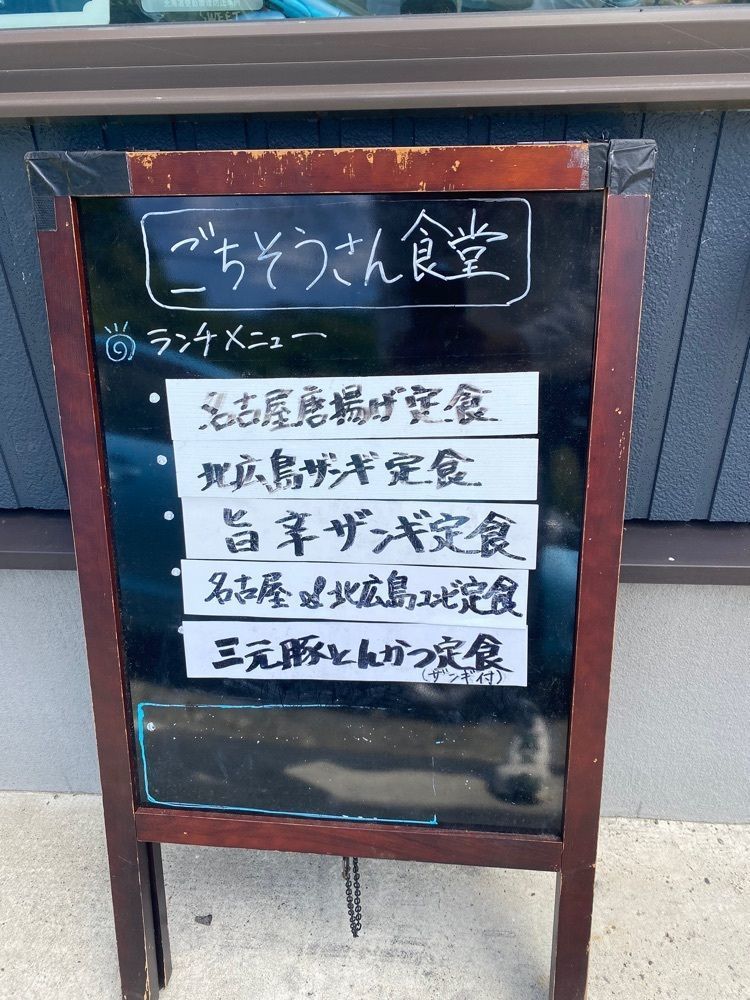 ごちそうさん食堂
ランチメニュー
名古屋唐揚げ定食
北広島ザンギ定食
旨辛ザンギ定食
名古屋&北広島コンビ定食
三元豚とんかつ定食
(ザンギ付)